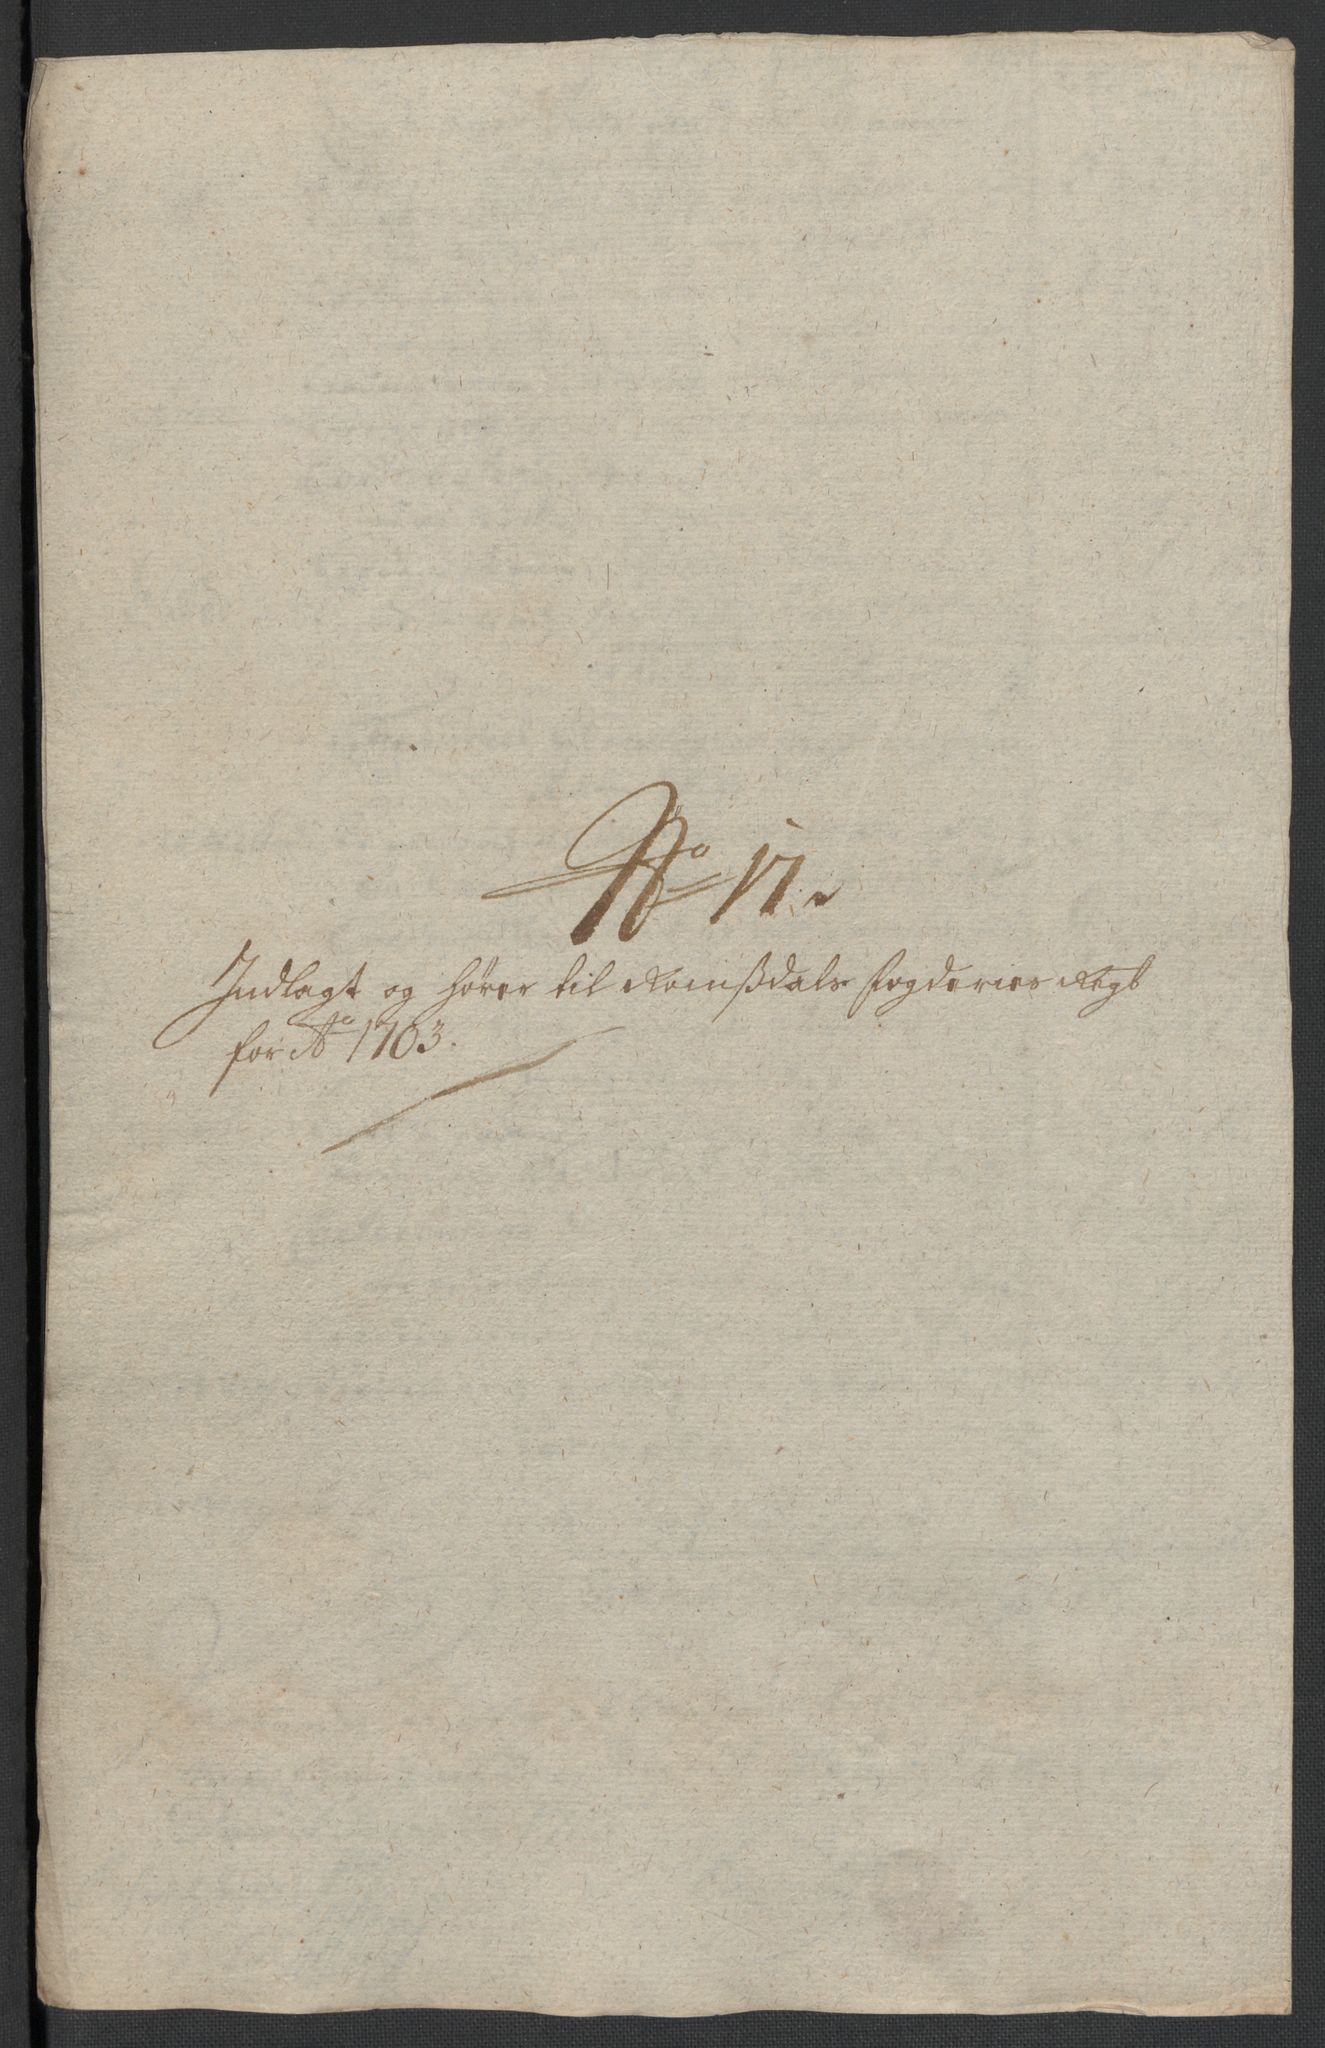 No 17.
Indlagt og hører til Romsdals fogderies Regb
for Ao 1703.